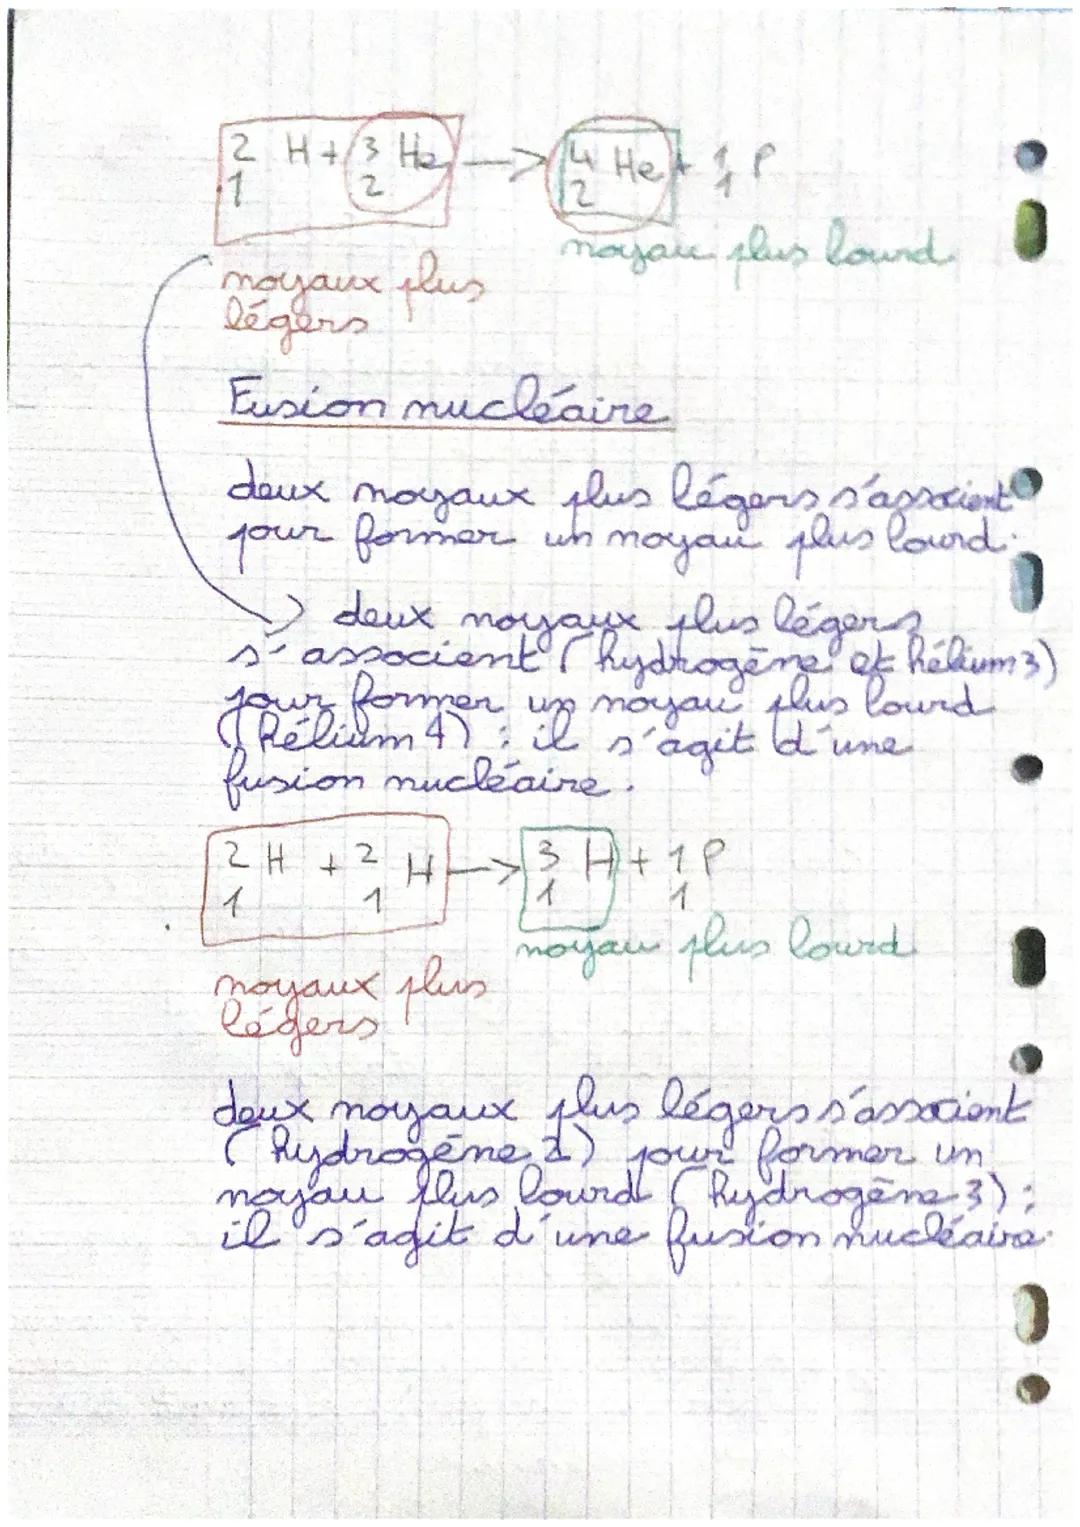 2 H + 3 He —> 4 He + 1 P
1 2 2 1
noyau plus lourd
noyaux plus
légers
Fusion nucléaire
deux noyaux plus légers s'associent
pour former un noyau plus lourd.
> deux noyaux plus légers
s'associent (hydrogène et hélium 3)
pour former un noyau plus lourd
(hélium 4) ; il s'agit d'une
fusion nucléaire.
2 H + 2 H —> 3 H + 1 P
1 1 1 1
noyau plus lourd
noyaux plus
légers
deux noyaux plus légers s'associent
(hydrogène 2) pour former un
noyau plus lourd (hydrogène 3) ;
il s'agit d'une fusion nucléaire.